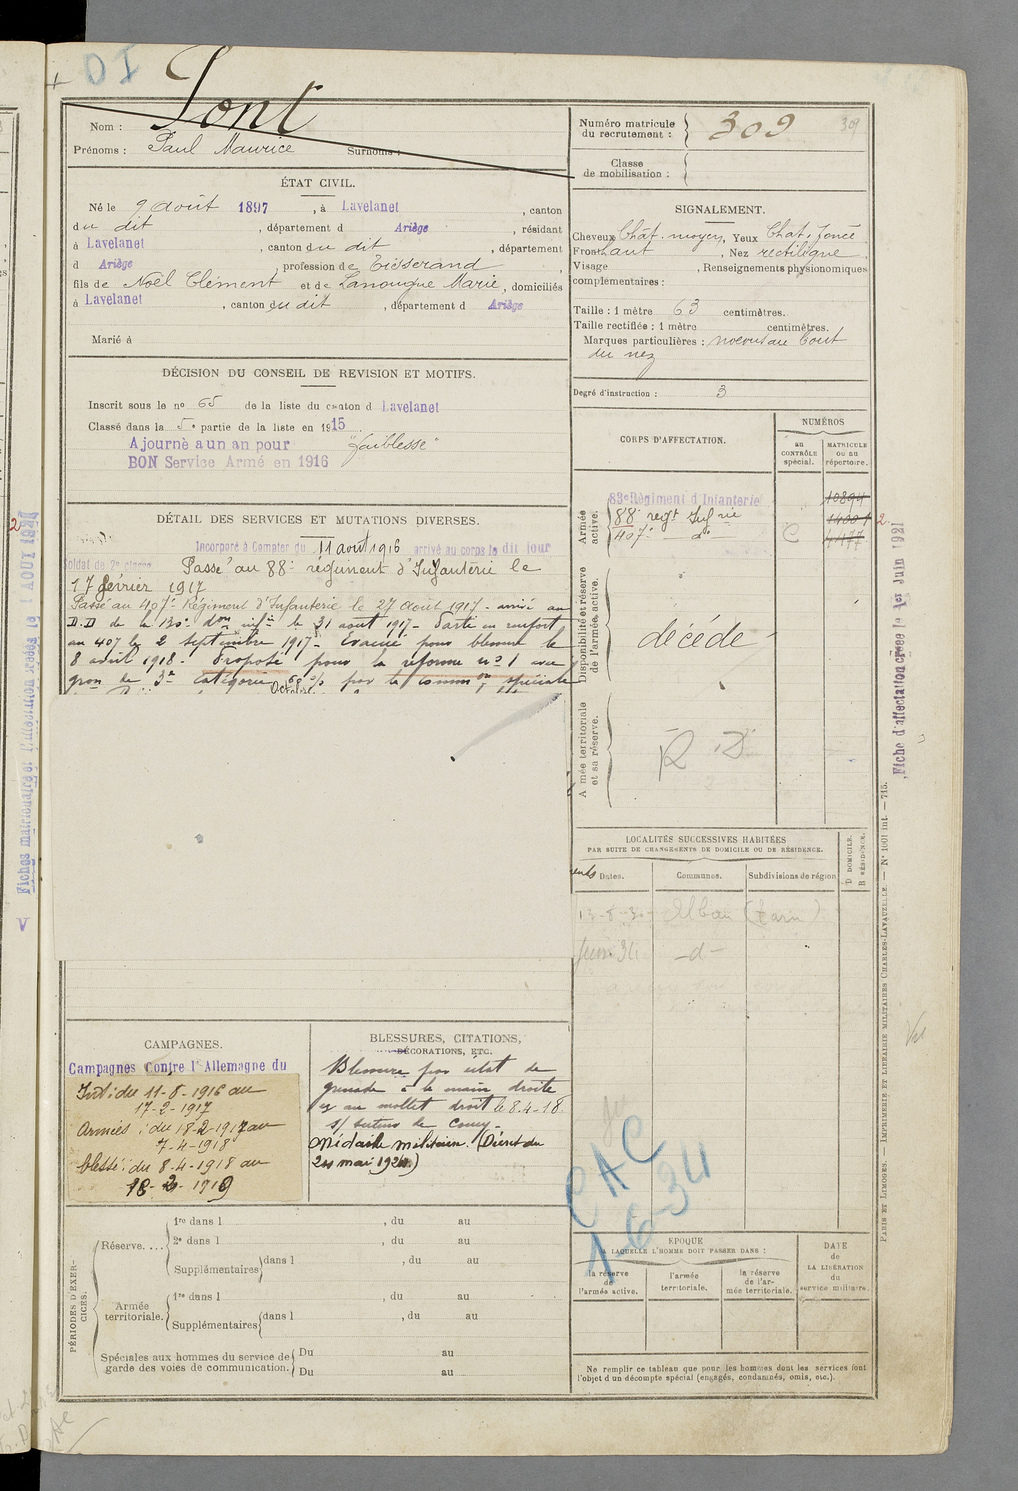 OI
Font
Nom :
Prénoms : Paul Maurice Surnoms :
ÉTAT CIVIL.
Né le 9 août 1897, à Lavelanet, canton
du dit, département d Ariège, résidant
à Lavelanet, canton du dit, département
d Ariège, profession de Tisserand,
fils de Noël Clément et de Lanougue Marie, domiciliés
à Lavelanet, canton du dit, département d Ariège
Marié à
DÉCISION DU CONSEIL DE REVISION ET MOTIFS.
Inscrit sous le nº 65 de la liste du canton d Lavelanet
Classé dans la 5e partie de la liste en 1915
Ajourné a un an pour "faiblesse"
BON Service Armé en 1916
DÉTAIL DES SERVICES ET MUTATIONS DIVERSES.
Incorporé à Compter du 11 août 1916 arrivé au corps le dit jour
Soldat de 2e classe Passé au 88e régiment d'Infanterie le
17 février 1917
Passé au 407e Régiment d'Infanterie le 27 août 1917 - arrivé au
D.D de la 130e don infie le 31 août 1917 - Parti en renfort
au 407 le 2 septembre 1917 - Evacué pour blessure le
8 avril 1918 - Proposé pour la réforme nº 1 avec
gron de 3e catégorie 68% par la common spéciale
Octobre
CAMPAGNES.
Campagnes Contre l'Allemagne du
Intr : du 11-8-1916 au
17-2-1917
Armées : du 18-2-1917 au
7-4-1918
blessé : du 8-4-1918 au
18-2-1919
BLESSURES, CITATIONS,
DÉCORATIONS, ETC.
Blessure par éclat de
grenade à la main droite
et au mollet droit le 8.4-18
s/ secteur de Coucy -
Médaille militaire. (Décret du
24 mai 1924.)
PÉRIODES D'EXERCICES.
Réserve....
1re dans l , du au
2e dans l , du au
Supplémentaires dans l , du au
Armée territoriale.
1re dans l , du au
Supplémentaires dans l , du au
Spéciales aux hommes du service de garde des voies de communication.
Du au
Du au
Numéro matricule du recrutement : 309
309
Classe de mobilisation :
SIGNALEMENT.
Cheveux Chât. moyen, Yeux Chat. foncé
Front haut, Nez rectiligne.
Visage , Renseignements physionomiques
complémentaires :
Taille : 1 mètre 63 centimètres.
Taille rectifiée : 1 mètre centimètres.
Marques particulières : noeud au bout
du nez
Degré d'instruction : 3
CORPS D'AFFECTATION.
NUMÉROS
au CONTRÔLE spécial.
MATRICULE ou au répertoire.
Armée active.
83e Régiment d'Infanterie 10894
88e regt Infrie 14001 2
407e do C 4477
Disponibilité et réserve de l'armée active.
décédé
Armée territoriale et sa réserve.
R D
LOCALITÉS SUCCESSIVES HABITÉES
PAR SUITE DE CHANGEMENTS DE DOMICILE OU DE RÉSIDENCE.
Dates. Communes. Subdivisions de région
D DOMICILE.
R RÉSIDENCE.
13-8-30 Alban (Tarn)
Juin 34 -d-
CAC
1-6-34
EPOQUE
A LAQUELLE L'HOMME DOIT PASSER DANS :
la réserve de l'armée active.
l'armée territoriale.
la réserve de l'armée territoriale.
DATE de LA LIBÉRATION du service militaire.
Ne remplir ce tableau que pour les hommes dont les services font
l'objet d'un décompte spécial (engagés, condamnés, omis, etc.).
Fiche d'affectation créée le 1er Juin 1921
PARIS ET LIMOGES. — IMPRIMERIE ET LIBRAIRIE MILITAIRES CHARLES-LAVAUZELLE. — Nº 1001 int. — 715.
Vu
2
V